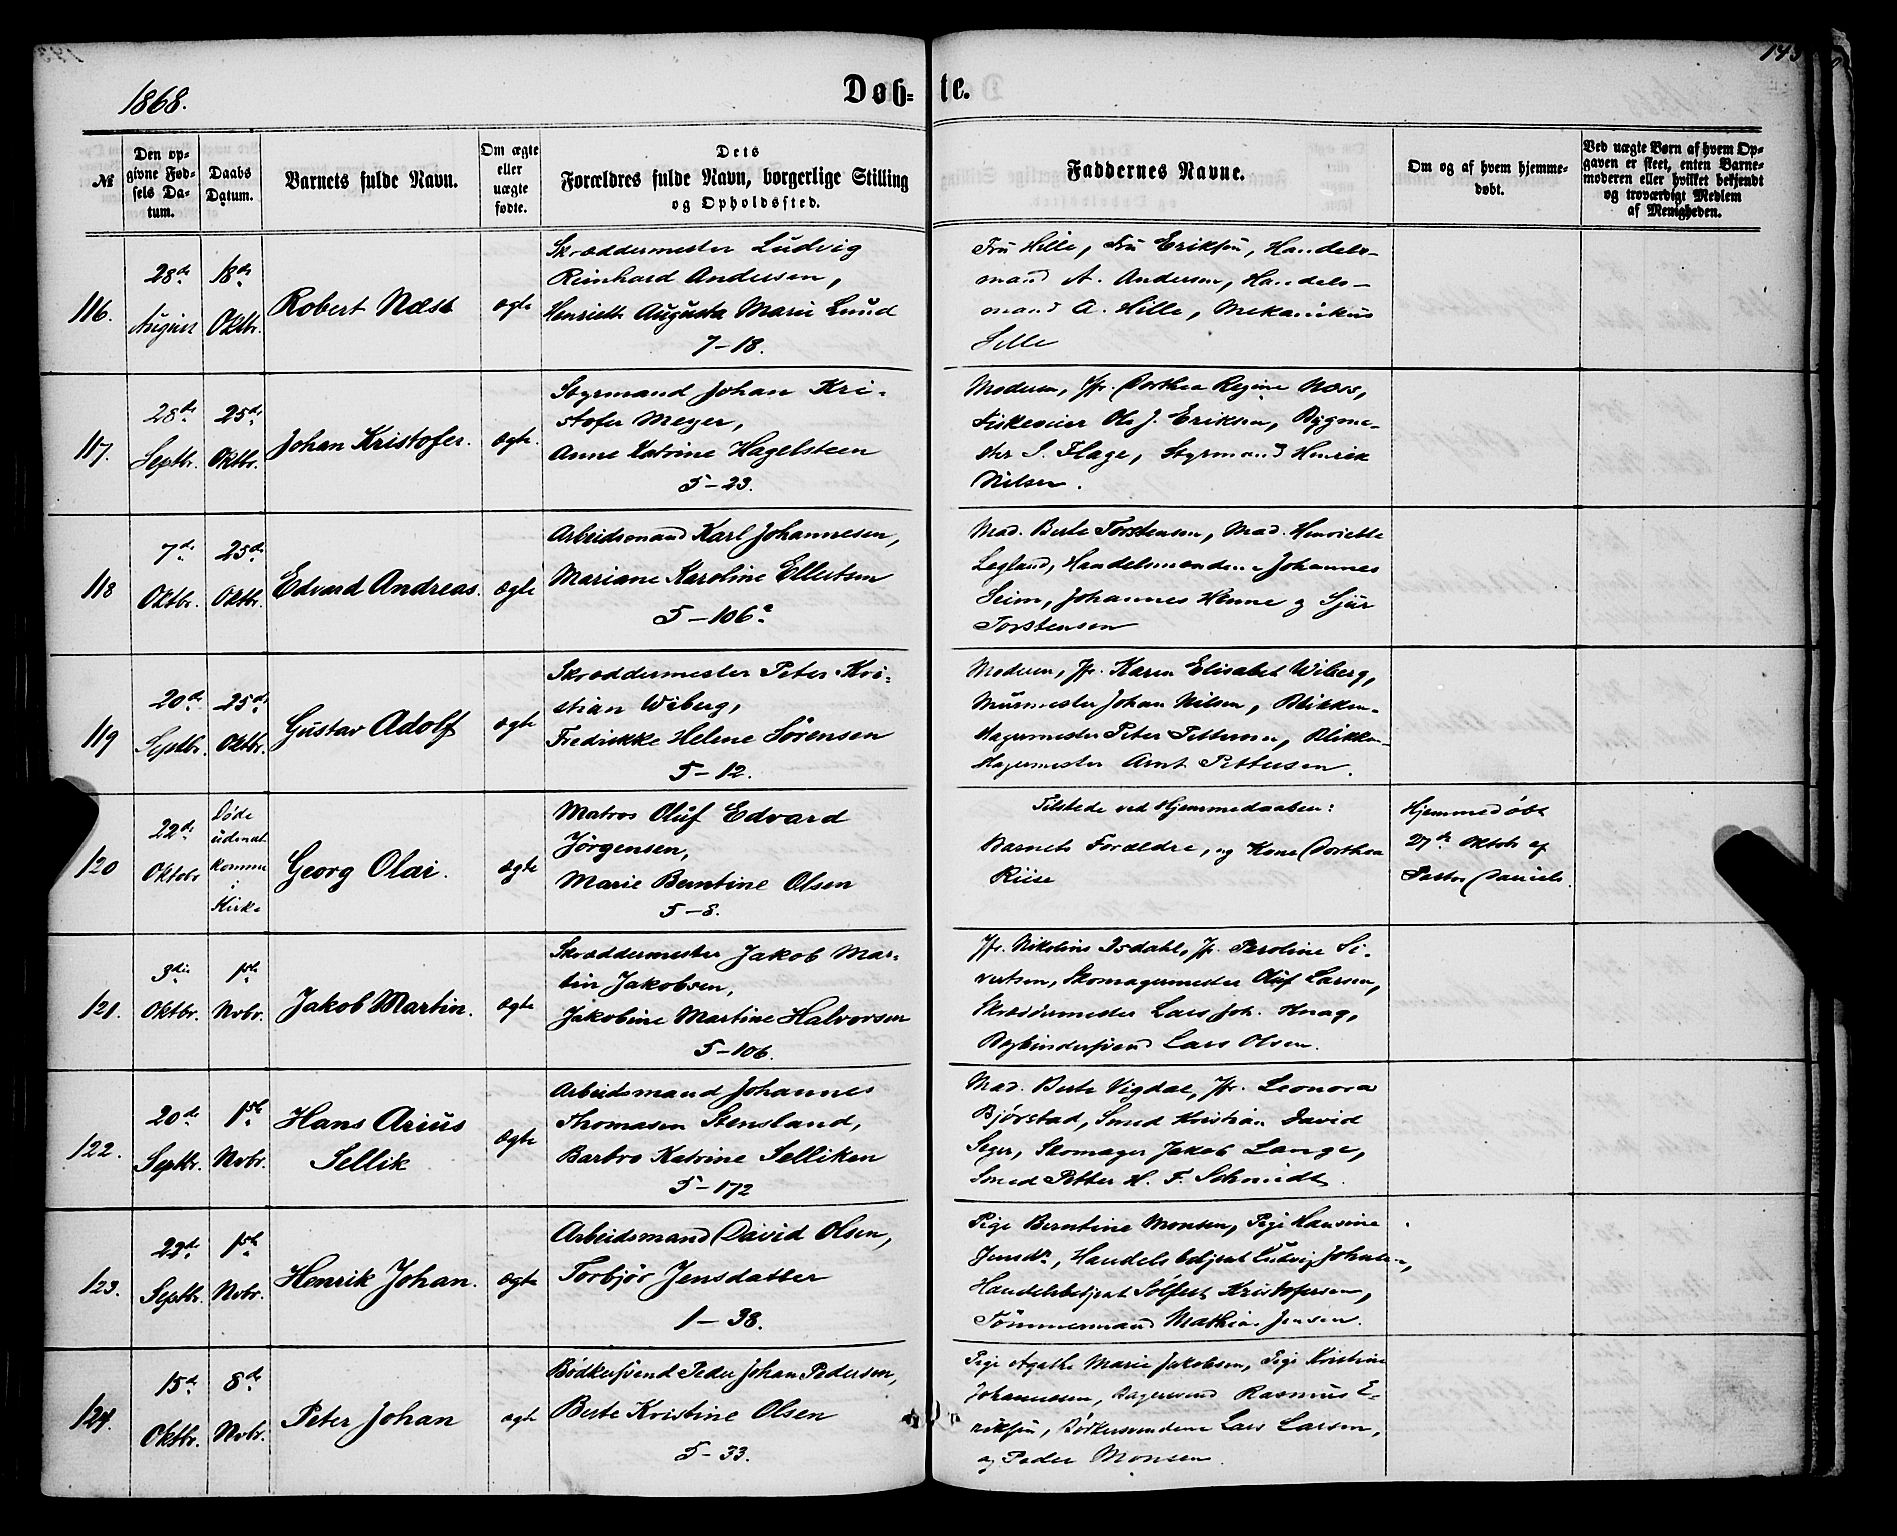 1868.
Døb-
te.
143
№
Den op-
givne Fød-
sels Da-
tum.
Daabs
Datum.
Barnets fulde Navn.
Om ægte
eller
uægte
fødte.
Dets
Forældres fulde Navn, borgerlige Stilling
og Opholdssted.
Faddernes Navne.
Om og af hvem hjemme-
døbt.
Ved uægte Børn af hvem Op-
gaven er skeet, enten Barne-
moderen eller hvilket bekjendt
og troværdigt Medlem
af Menigheden.
116.
28de
August
18de
Oktbr.
Robert Næst
ægte
Skræddermester Ludvig
Reinhard Andersen,
Henriette Augusta Marie Lund
7-18.
Fru Hille, Fru Eriksen, Handels-
mand A. Andersen, Handels-
mand A. Hille, Mekanikus
117.
28de
Septbr.
25de
Oktbr.
Johan Kristofer.
ægte.
Styrmand Johan Kri-
stofer Meyer,
Anne Katrine Hagelsteen
5-23.
Moderen, Jfr. Dorthea Regine Næss,
Fiskeveier Ole J. Eriksen, Bygme-
ster S. Flage, Styrmand Henrik
Nilsen.
118
7de
Oktbr.
25de
Oktbr.
Edvard Andreas.
ægte
Arbeidsmand Karl Johannesen,
Mariane Karoline Ellertsen
5-106a
Mad. Berte Torstensen, Mad. Henriette
Legland, Handelsmændene Johannes
Seim, Johannes Henne og Sjur
Torstensen
119
20de
Septbr.
25de
Oktbr.
Gustav Adolf
ægte
Skræddermester Peter Kri-
stian Wiberg,
Fredrikke Helene Sörensen
5-12.
Moderen, Jfr. Karen Elisabet Wiberg,
Murmester Johan Nilsen, Blikken-
slagermester Peter Pettersen, Blikken-
slagermester Arnt Pettersen.
120
22de
Oktobr
Døde
uden at
komme
i
Kirke
Georg Olai.
ægte
Matros Oluf Edvard
Jörgensen,
Marie Berntine Olsen
5-8.
Tilstede ved Hjemmedaaben:
Barnets Forældre, og Kone Dorthea
Riise
Hjemmedöbt
27de Oktob. af
Pastor Daniels.
121.
3die
Oktbr.
1ste
Nvbr.
Jakob Martin.
ægte
Skræddermester Jakob Mar-
tin Jakobsen,
Jakobine Martine Halvorsen
5-106.
Jfr. Nikoline Isdahl, Jfr. Karoline Si-
vertsen, Skomagermester Oluf Larsen,
Skræddermester Lars Joh. Knag,
Bogbindersvend Lars Olsen.
122.
20de
Septbr.
1ste
Nvbr.
Hans Arius
Sellik
ægte
Arbeidsmand Johannes
Thomasen Stensland,
Barbro Katrine Selliken
5-172
Mad. Berte Vigdal, Jfr. Leonora
Bjørstad, Smed Kristian David
Seger, Skomager Jakob Lange,
Smed Petter H. F. Schmidt.
123.
22de
Septbr.
1ste
Nvbr.
Henrik Johan.
ægte
Arbeidsmand David Olsen,
Torbjör Jensdatter
1-38.
Pige Berntine Monsen, Pige Hansine
Jensdr, Handelsbetjent Ludvig Johnsen,
Handelsbetjent Sölfest Kristofersen,
Tömmermand Mathias Jensen.
124.
15de
Oktbr.
8de
Nvbr.
Peter Johan
ægte
Bödkersvend Peder Johan Pedersen,
Berte Kristine Olsen
5-33.
Pige Agathe Marie Jakobsen, Pige Kristine
Johannesen, Bagersvend Rasmus E-
riksen, Bödkersvendene Lars Larsen,
og Peder Monsen.